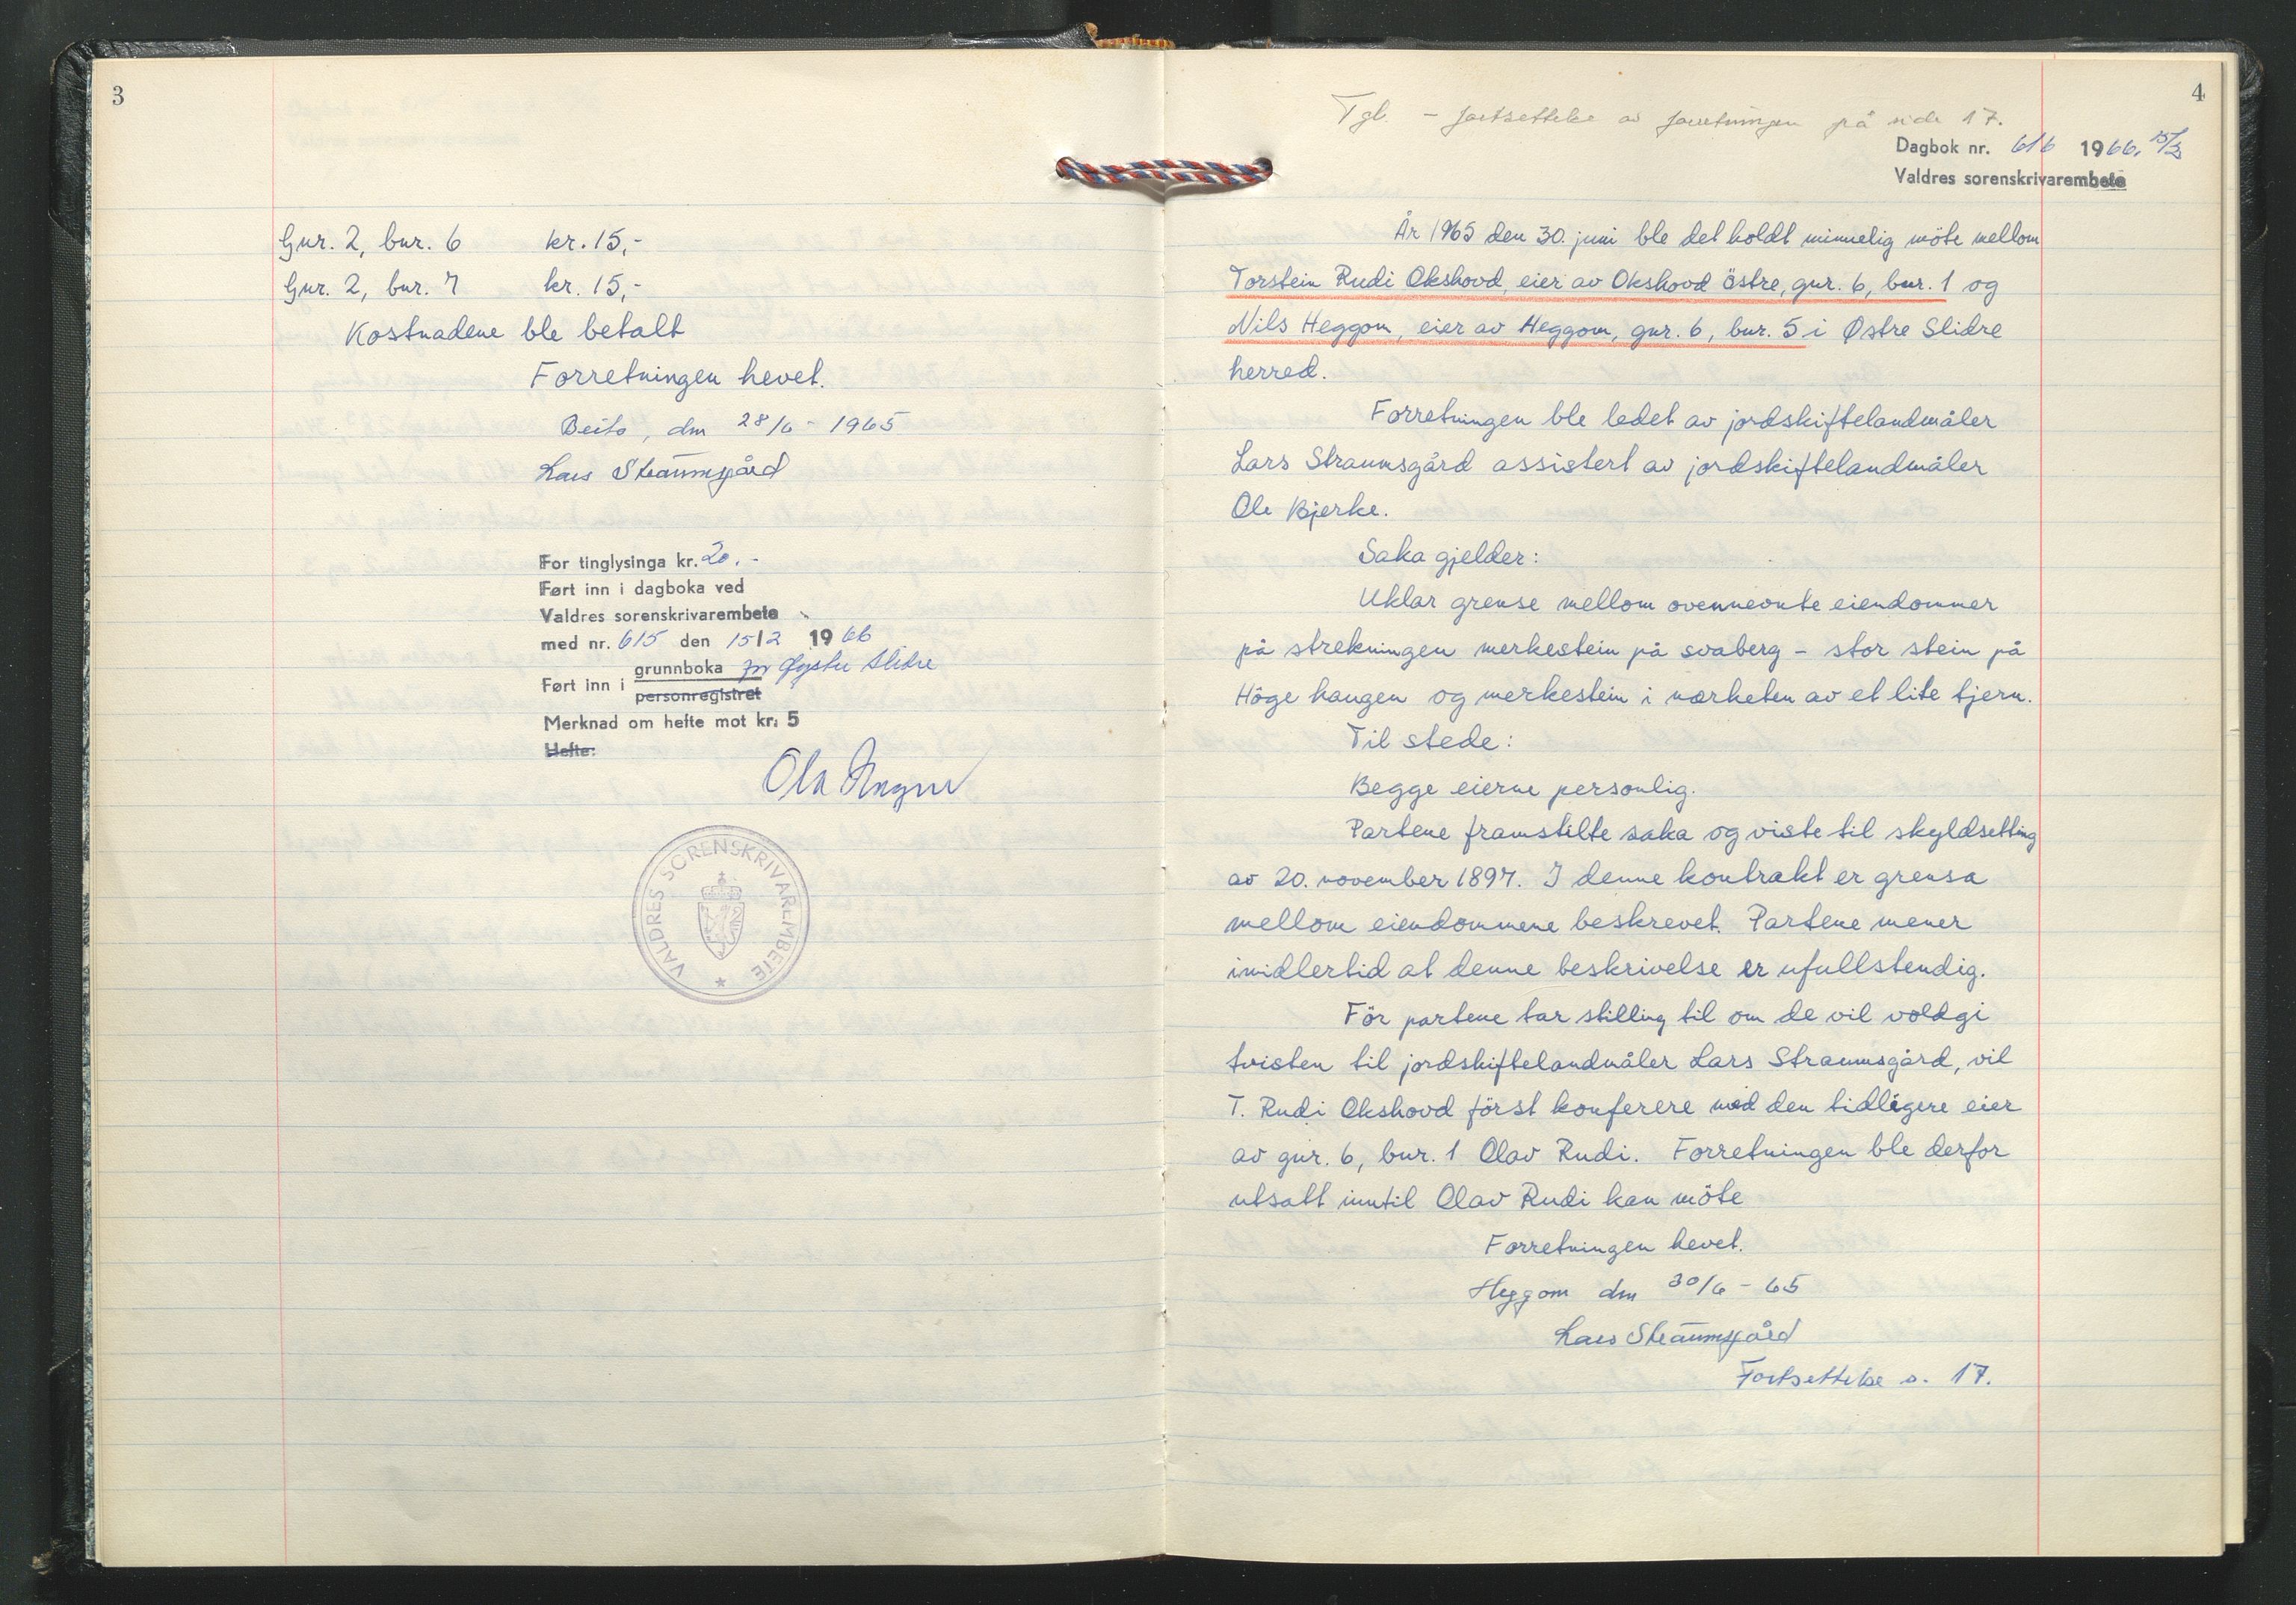 3
Gnr. 2, bnr. 6 kr. 15,-
Gnr. 2, bnr. 7 kr. 15,-
Kostnadene ble betalt
Forretningen hevet.
Beito, den 28/6 - 1965
Lars Straumsgård
For tinglysinga kr. 20.-
Ført inn i dagboka ved
Valdres sorenskrivarembete
med nr. 615 den 15/2 1966
Ført inn i grunnboka for Øystre Slidre
personregistret
Merknad om hefte mot kr. 5
Hefte:
Ola
VALDRES SORENSKRIVAREMBETE
4
Tgl. - fortsettelse av forretningen på side 17.
Dagbok nr. 616 1966, 15/2
Valdres sorenskrivarembete
År 1965 den 30. juni ble det holdt minnelig möte mellom
Torstein Rudi Okshovd, eier av Okshovd östre, gnr. 6, bnr. 1 og
Nils Heggom, eier av Heggom, gnr. 6, bnr. 5 i Østre Slidre
herred.
Forretningen ble ledet av jordskiftelandmåler
Lars Straumsgård assistert av jordskiftelandmåler
Ole Bjerke.
Saka gjelder:
Uklar grense mellom ovennevnte eiendommer
på strekningen merkestein på svaberg - stor stein på
Höge haugen og merkestein i nærheten av et lite tjern.
Til stede:
Begge eierne personlig.
Partene framstilte saka og viste til skyldsetting
av 20. november 1897. I denne kontrakt er grensa
mellom eiendommene beskrevet. Partene mener
imidlertid at denne beskrivelse er ufullstendig.
För partene tar stilling til om de vil voldgi
tvisten til jordskiftelandmåler Lars Straumsgård, vil
T. Rudi Okshovd först konferere med den tidligere eier
av gnr. 6, bnr. 1 Olav Rudi. Forretningen ble derfor
utsatt inntil Olav Rudi kan möte
Forretningen hevet.
Heggom den 30/6 - 65
Lars Straumsgård
Fortsettelse s. 17.